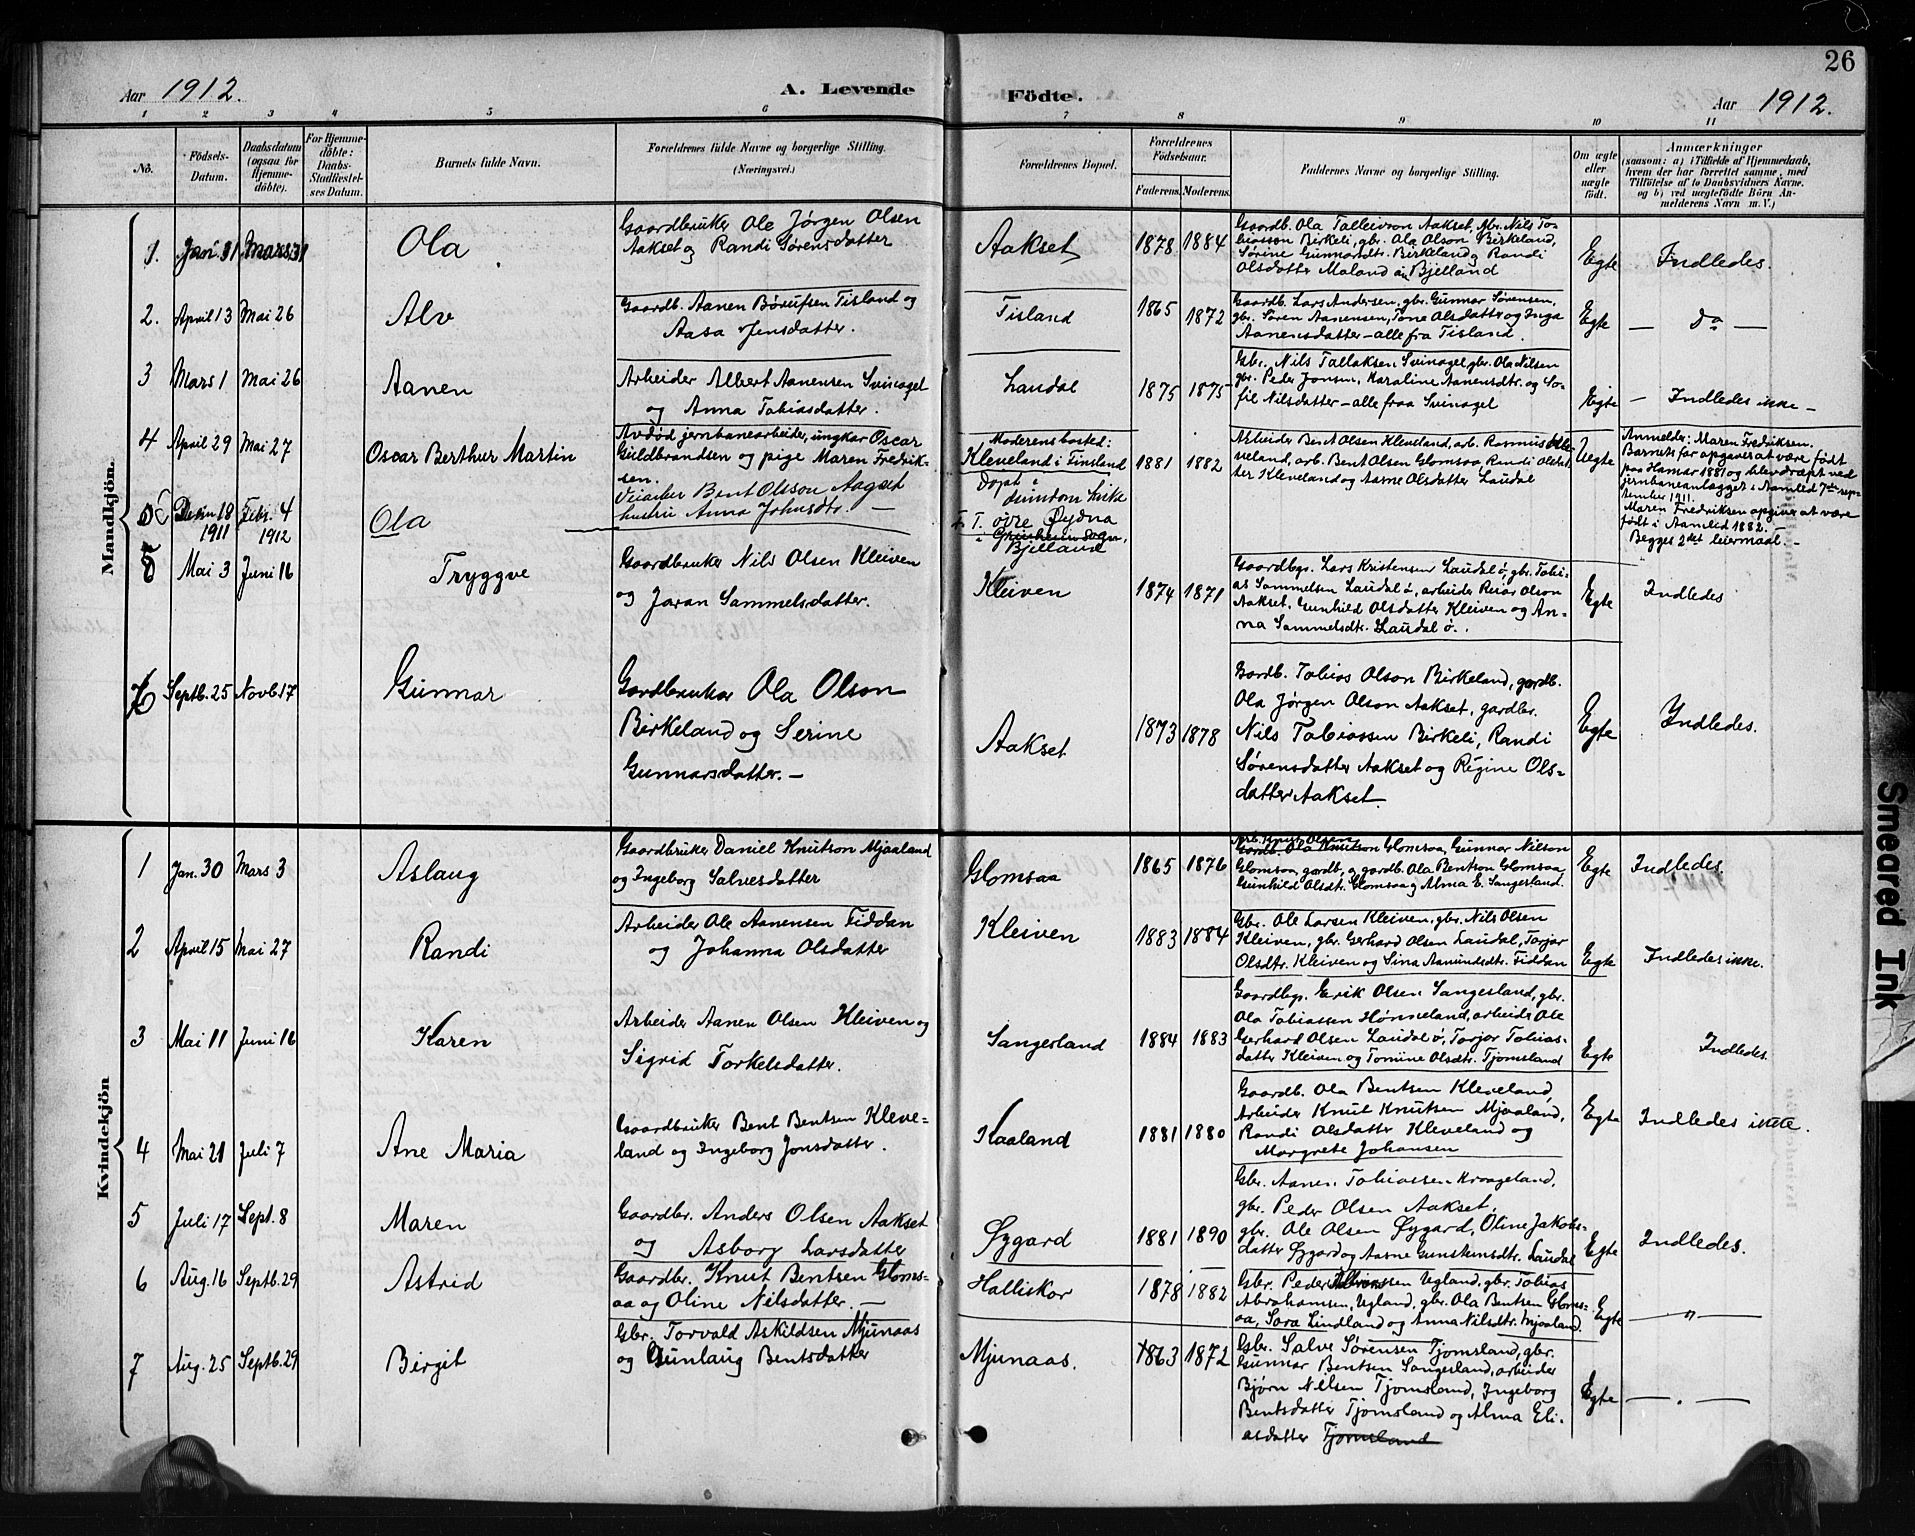 26
Aar 1912.
A. Levende
Födte.
Aar 1912.
1 2 3 4 5 6 7 8 9 10 11
No.
Födsels-
Datum.
Daabsdatum
(ogsaa for
Hjemme-
döbte).
For Hjemme-
döbte:
Daabs-
Stadfæstel-
ses Datum.
Barnets fulde Navn.
Forældrenes fulde Navne og borgerlige Stilling.
(Næringsvei.)
Forældrenes Bopæl.
Forældrenes
Födselsaar.
Faderens. Moderens.
Faddernes Navne og borgerlige Stilling.
Om ægte
eller
uægte
födt.
Anmærkninger
(saasom: a) i Tilfælde af Hjemmedaab,
hvem der har forrettet samme, med
Tilföielse af to Daabsvidners Navne,
og b) ved uægtefödte Börn An-
melderens Navn m. V.)
Mandkjön.
1. Jan 31 Mars 31
Ola
Gaardbruker Ole Jørgen Olsen
Aakset og Randi Sørensdatter
Aakset
1878 1884
Gaardb. Ola Talleivson Aakset, gbr. Nils To-
biasson Birkeli, gbr. Ola Olson Birkeland,
Sørine Gunnarsdtr. Birkeland og Randi
Olsdatter Maland i Bjelland
Egte
Indledes.
2. April 13 Mai 26
Alv
Gaardb. Aanen Børufsen Tisland og
Aasa Jensdatter.
Tisland
1865 1872
Gaardb. Lars Andersen, gbr. Gunnar Sørensen,
gbr. Søren Aanensen, Tone Olsdatter og Inga
Aanensdatter – alle fra Tisland.
Egte
— Do —
3 Mars 1 Mai 26
Aanen
Arbeider Albert Aanensen Svinagel
og Anna Tobiasdatter.
Laudal
1875 1875
Gbr. Nils Tallaksen Svinagel, gbr. Ola Nilsen
gbr. Peder Jonsen, Karaline Aanensdtr. og So-
fie Nilsdatter – alle fraa Svinagel
Egte
— Indledes ikke —
4 April 29 Mai 27
Oscar Berthur Martin
Avdød jernbanearbeider, ungkar Oscar
Guldbrandsen og pige Maren Fredrik-
sen.
Moderens bosted:
Kleveland i Finsland
1881 1882
Arbeider Bent Olsen Kleveland, arb. Rasmus Kle-
veland, arb. Bent Olsen Glomsaa, Randi Olsdat-
ter Kleveland og Aasne Olsdatter Laudal
Uegte
Anmelder: Maren Fredriksen.
Barnets far opgaves at være født
paa Hamar 1881 og blev dræpt ved
jernbaneanlægget i Aamlid 7de sep-
tember 1911.
Maren Fredriksen opgives at være
født i Aamlid 1882. —
Begges 2det leiermaal —
5 Desm 18 Febr. 4
1911 1912
Ola
Bent Olsson Aagset
hustru Anna Johnsdtr. —
Døpt i
kirke
øvre Øydna
i Grindheim sogn,
Bjelland
6 Mai 3 Juni 16
Tryggve
Gaardbruker Nils Olsen Kleiven
og Jaran Sammelsdatter.
Kleiven
1874 1871
Gaardbgr. Lars Kristensen Laudal ø, gbr. Tobi-
as Sammelsen Laudal ø, arbeider Reias Olson
Aakset, Gunhild Olsdatter Kleiven og An-
na Sammelsdtr. Laudal ø.
Egte
Indledes
7 Septb. 25 Novb. 17
Gunnar
Gardbrukar Ola Olson
Birkeland og Serine
Gunnarsdatter. —
Aakset
1873 1878
Gardb. Tobias Olson Birkeland, gardb.
Ola Jørgen Olson Aakset, gardbr.
Nils Tobiassen Birkeli, Randi
Sørensdatter Aakset og Regine Ols-
datter Aakset.
Egte
Indledes.
Kvindekjön
1 Jan. 30 Mars 3
Aslaug
Gaardbruker Daniel Knutson Mjaaland
og Ingeborg Salvesdatter
Glomsaa
1865 1876
arb. Knut Olsen
Gardb. Ola Knutson Glomsaa, Gunnar Nilson
Glomsaa, gardb., og gardb. Ola Bentson Glomsaa
Gunhild Olsdt. Glomsaa og Alma E. Sangerland.
Egte
Indledes.
2 April 15 Mai 27
Randi
Arbeider Ole Aanensen Fiddan
og Johanna Olsdatter
Kleiven
1883 1884
Gbr. Ole Larsen Kleiven, gbr. Nils Olsen
Kleiven, gbr. Gerhard Olsen Laudal, Torjor
Olsdtr. Kleiven og Sina Aamundsdtr. Fiddan
Egte
Indledes ikke.
3 Mai 11 Juni 16
Karen
Arbeider Aanen Olsen Kleiven og
Sigrid Torkelsdatter.
Sangerland
1884 1883
Gaardbgr. Erik Olsen Sangesland, gbr.
Ola Tobiassen Hønneland, arbeide Ole
Gerhard Olsen Laudal ø, Torjor Tobias-
datter Kleiven og Tomine Olsdtr. Tjomsland
Egte
Indledes
4 Mai 21 Juli 7
Ane Maria
Gaardbruker Bent Bentsen Kleve-
land og Ingeborg Jonsdatter.
Kaaland
1881 1880
Gaardb. Ola Bentsen Kleveland,
Arbeider Knut Knutsen Mjaaland,
Randi Olsdatter Kleveland og
Margrete Johansen
Egte
Indledes ikke.
5 Juli 17 Sept. 8
Maren
Gaardbr. Anders Olsen Aakset
og Asborg Larsdatter
Øygard
1881 1890
Gbr. Aanen Tobiassen Kraageland,
gbr. Peder Olsen Aakset,
gbr. Ole Olsen Øygard, Oline Jakobs-
datter Øygard og Aasne Gunstensdtr. Laudal
Egte
Indledes.
6 Aug. 16 Septb. 29
Astrid
Gaardbr. Knut Bentsen Gloms-
aa og Oline Nilsdatter. —
Halliskor
1878 1882
Gbr. Peder Ugland, gbr. Tobias
Abrahamsen, Ugland, gbr. Ola Bentsen Gloms-
aa, Sara Lindland og Anna Nilsdtr. Mjaaland.
Egte
— " —
7 Aug. 25 Septb. 29
Birgit
Gbr. Torvald Askildsen Mjunaas
og Gunlaug Bentsdatter
Mjunaas.
1863 1872
Gbr. Salve Sørensen Tjomsland, gbr.
Gunnar Bentsen Sangesland, arbeider
Bjørn Nilsen Tjomsland, Ingeborg
Bentsdatter Tjomsland og Alma Eli-
asdatter Tjomsland
Egte
— " —
Smeared Ink